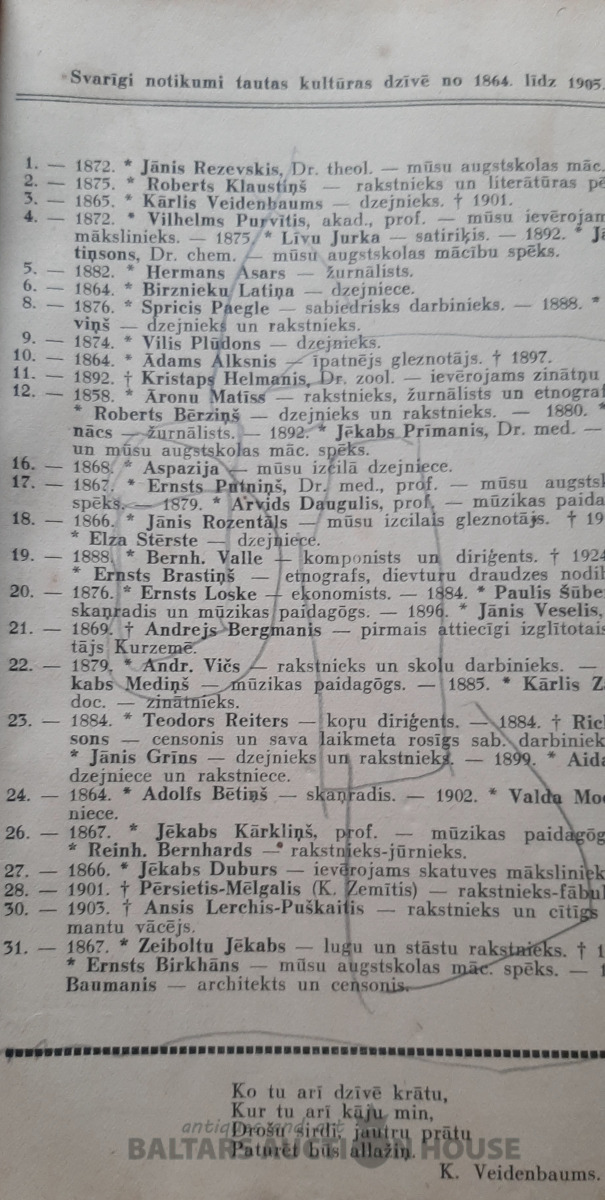 Svarīgi notikumi tautas kultūras dzīvē no 1864. līdz 1905.
1. — 1872. * Jānis Rezevskis, Dr. theol. — mūsu augstskolas māc.
2. — 1875. * Roberts Klaustiņš — rakstnieks un literātūras pē
3. — 1865. * Kārlis Veidenbaums — dzejnieks. † 1901.
4. — 1872. * Vilhelms Purvītis, akad., prof. — mūsu ievērojam
mākslinieks. — 1875. * Līvu Jurka — satiriķis. — 1892. * Jā
tiņsons, Dr. chem. — mūsu augstskolas mācību spēks.
5. — 1882. * Hermans Asars — žurnālists.
6. — 1864. * Birznieku Latiņa — dzejniece.
8. — 1876. * Spricis Paegle — sabiedrisks darbinieks. — 1888. *
viņš — dzejnieks un rakstnieks.
9. — 1874. * Vilis Plūdons — dzejnieks.
10. — 1864. * Ādams Alksnis — īpatnējs gleznotājs. † 1897.
11. — 1892. † Kristaps Helmanis, Dr. zool. — ievērojams zinātņu
12. — 1858. * Āronu Matīss — rakstnieks, žurnālists un etnograf
* Roberts Bērziņš — dzejnieks un rakstnieks. — 1880. *
nācs — žurnālists. — 1892. * Jēkabs Prīmanis, Dr. med. —
un mūsu augstskolas māc. spēks.
16. — 1868. * Aspazija — mūsu izcilā dzejniece.
17. — 1867. * Ernsts Putniņš, Dr. med., prof. — mūsu augstsk
spēks. — 1879. * Arvids Daugulis, prof. — mūzikas paida
18. — 1866. * Jānis Rozentāls — mūsu izcilais gleznotājs. † 19
* Elza Stērste — dzejniece.
19. — 1888. * Bernh. Valle — komponists un diriģents. † 1924
* Ernsts Brastiņš — etnografs, dievturu draudzes nodib
20. — 1876. * Ernsts Loske — ekonomists. — 1884. * Paulis Šūbe
skaņradis un mūzikas paidagōgs. — 1896. * Jānis Veselis,
21. — 1869. † Andrejs Bergmanis — pirmais attiecīgi izglītotais
tājs Kurzemē.
22. — 1879. * Andr. Vičs — rakstnieks un skolu darbinieks. —
kabs Mediņš — mūzikas paidagōgs. — 1885. * Kārlis Z
doc. — zinātnieks.
23. — 1884. * Teodors Reiters — koŗu diriģents. — 1884. † Ric
sons — censonis un sava laikmeta rosīgs sab. darbiniek
* Jānis Grīns — dzejnieks un rakstnieks. — 1899. * Aida
dzejniece un rakstniece.
24. — 1864. * Adolfs Bētiņš — skaņradis. — 1902. * Valda Mo
niece.
26. — 1867. * Jēkabs Kārkliņš, prof. — mūzikas paidagōg
* Reinh. Bernhards — rakstnieks-jūrnieks.
27. — 1866. * Jēkabs Duburs — ievērojams skatuves māksliniek
28. — 1901. † Pērsietis-Mēlgalis (K. Zemītis) — rakstnieks-fābul
30. — 1903. † Ansis Lerchis-Puškaitis — rakstnieks un cītīgs
mantu vācējs.
31. — 1867. * Zeiboltu Jēkabs — lugu un stāstu rakstnieks. † 1
* Ernsts Birkhāns — mūsu augstskolas māc. spēks. — 1
Baumanis — architekts un censonis.
Ko tu arī dzīvē krātu,
Kur tu arī kāju min,
Drošu sirdi, jautru prātu
Paturēt būs allažiņ.
K. Veidenbaums.
BALTARS AUCTION HOUSE